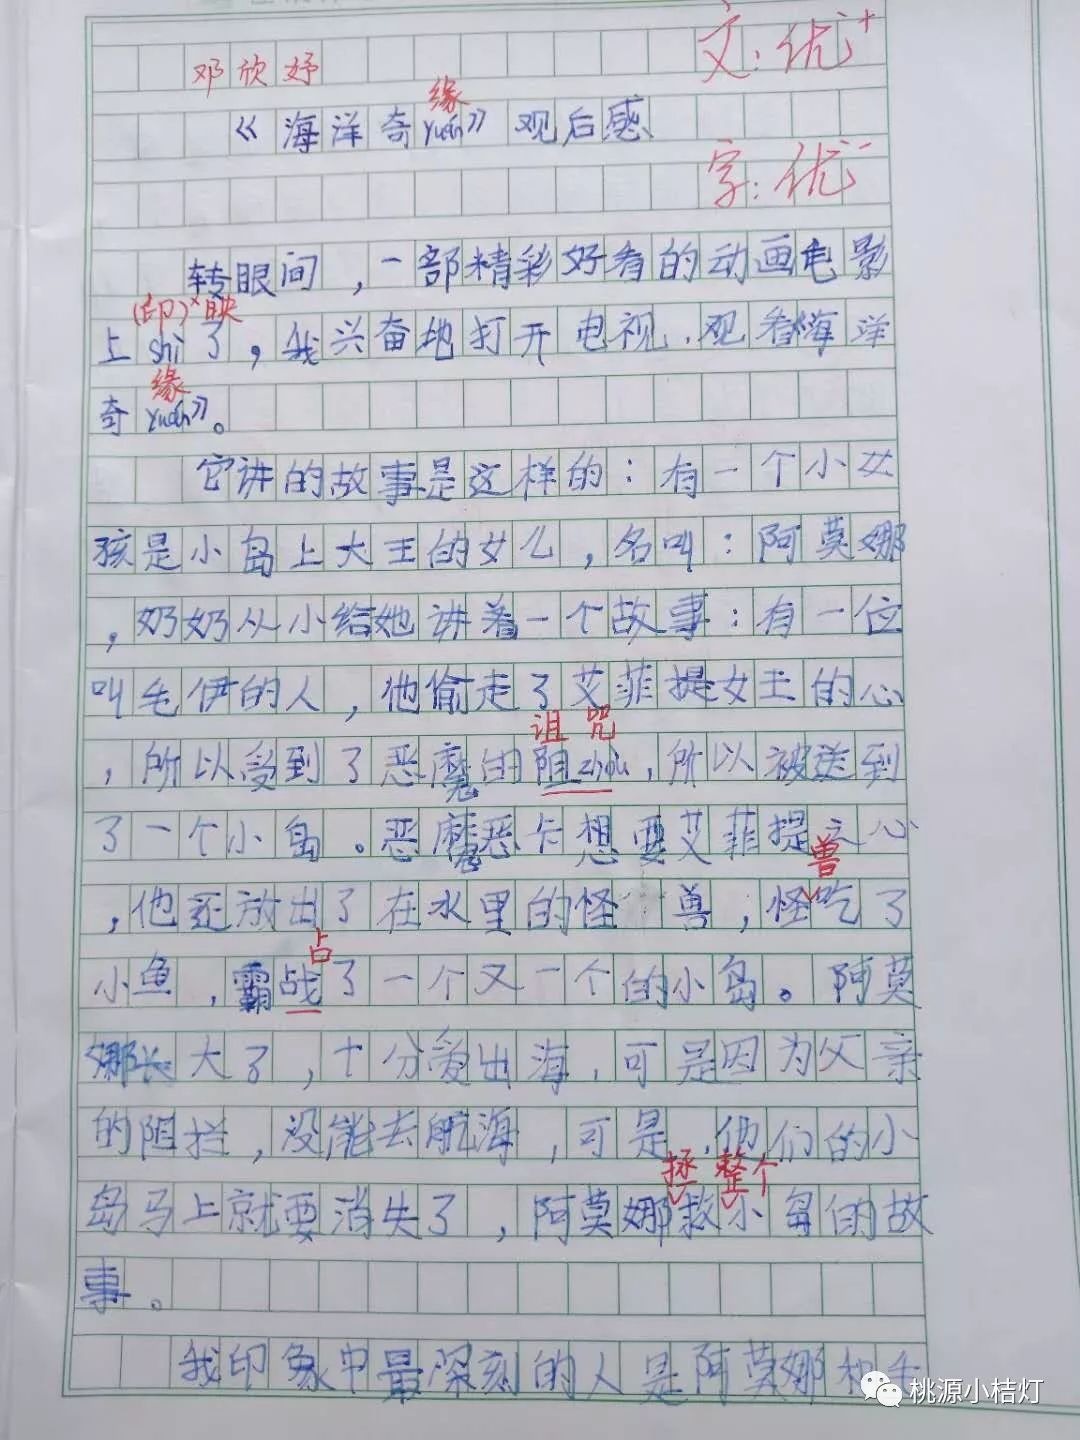 文：优+
邓欣妤
缘
《海洋奇yuán》观后感
字：优-
转眼间，一部精彩好看的动画电影
(印)×映
上shì了，我兴奋地打开电视，观看《海洋
缘
奇yuán》。
它讲的故事是这样的：有一个小女
孩是小岛上大王的女儿，名叫：阿莫娜
，奶奶从小给她讲着一个故事：有一位
叫毛伊的人，他偷走了艾菲提女王的心
诅咒
，所以受到了恶魔的阻zhòu，所以被送到
了一个小岛。恶魔恶卡想要艾菲提之心
兽
，他还放出了在水里的怪兽，怪吃了
占
小鱼，霸战了一个又一个的小岛。阿莫
娜长大了，十分爱出海，可是因为父亲
的阻拦，没能去航海，可是，他们的小
拯 整个
岛马上就要消失了，阿莫娜救小岛的故
事。
我印象中最深刻的人是阿莫娜和毛
桃源小桔灯